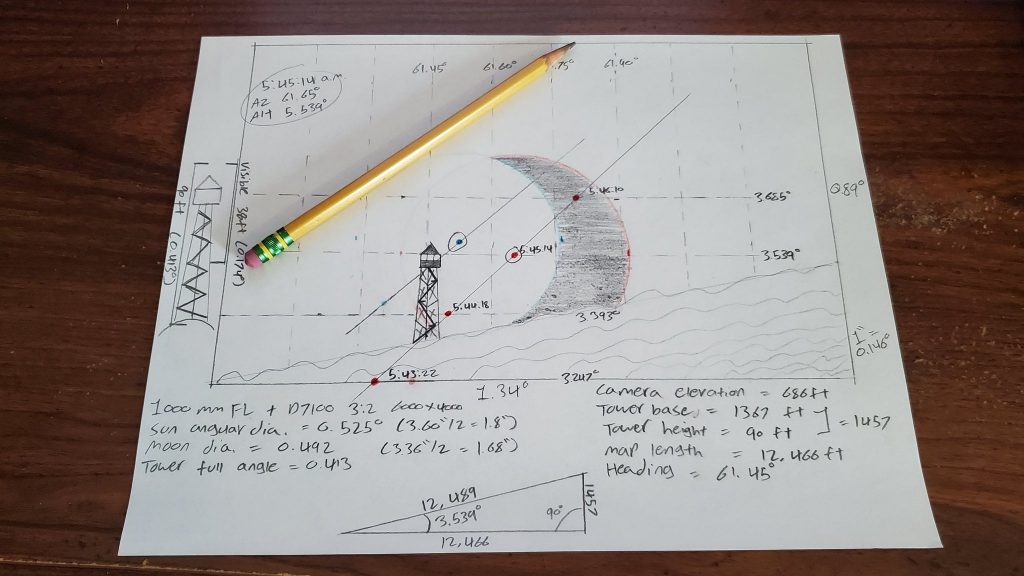 61.45° 61.60° .75° 61.90°
5:45:14 a.m.
AZ 61.65°
Alt 5.539°
90 ft (0.413°)
Visible 38ft (0.174°)
5.46.10
5.45.14
5.44.18
5:43:22
3.685°
3.539°
3.393°
3.247°
0.89°
1" = 0.146°
1.34°
1000 mm FL + D7100 3:2 6000x4000
Sun angular dia. = 0.525° (3.60"/2 = 1.8")
Moon dia. = 0.492 (3.36"/2 = 1.68")
Tower full angle = 0.413
Camera elevation = 686ft
Tower base = 1367 ft
Tower height = 90 ft
] = 1457
map length = 12,466 ft
Heading = 61.45°
12,489
3.539°
90°
1457
12,466